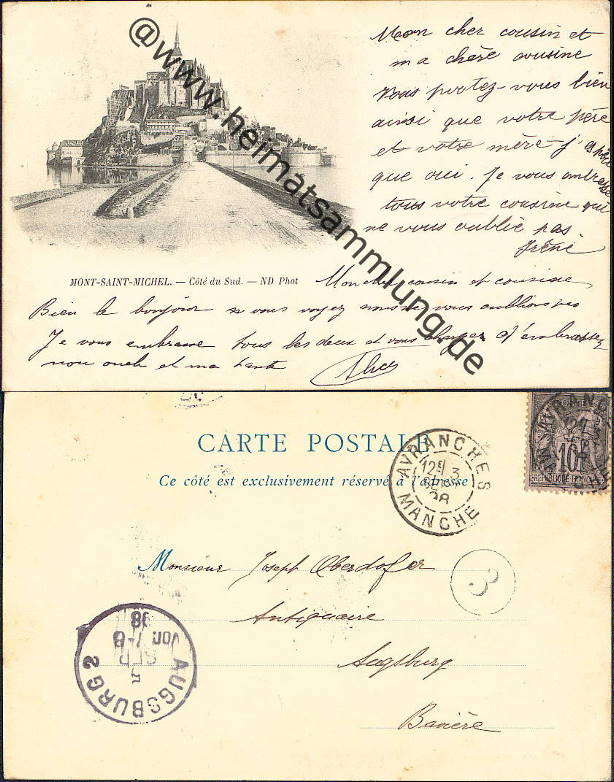 @www.heimatsammlung.de
Mon cher cousin et
ma chère cousine
vous portez-vous bien
ainsi que votre père
et votre mère j'espère
que oui. Je vous embrasse
tous votre cousine qui
ne vous oublie pas
Irène
MONT-SAINT-MICHEL. — Côté du Sud. — ND Phot
Mon cher cousin et cousine
Bien le bonjour si vous voyez nous ne vous oublions pas
Je vous embrasse tous les deux et vous d'embrasser
mon oncle et ma tante
Alice
CARTE POSTALE
Ce côté est exclusivement réservé à l'adresse
AVRANCHES
12E 3
98
MANCHE
10
Monsieur Joseph Oberdofer
Antiquaire
Augsburg
Bavière
3
AUGSBURG 2
5
SEP
Vor. 7-8
98